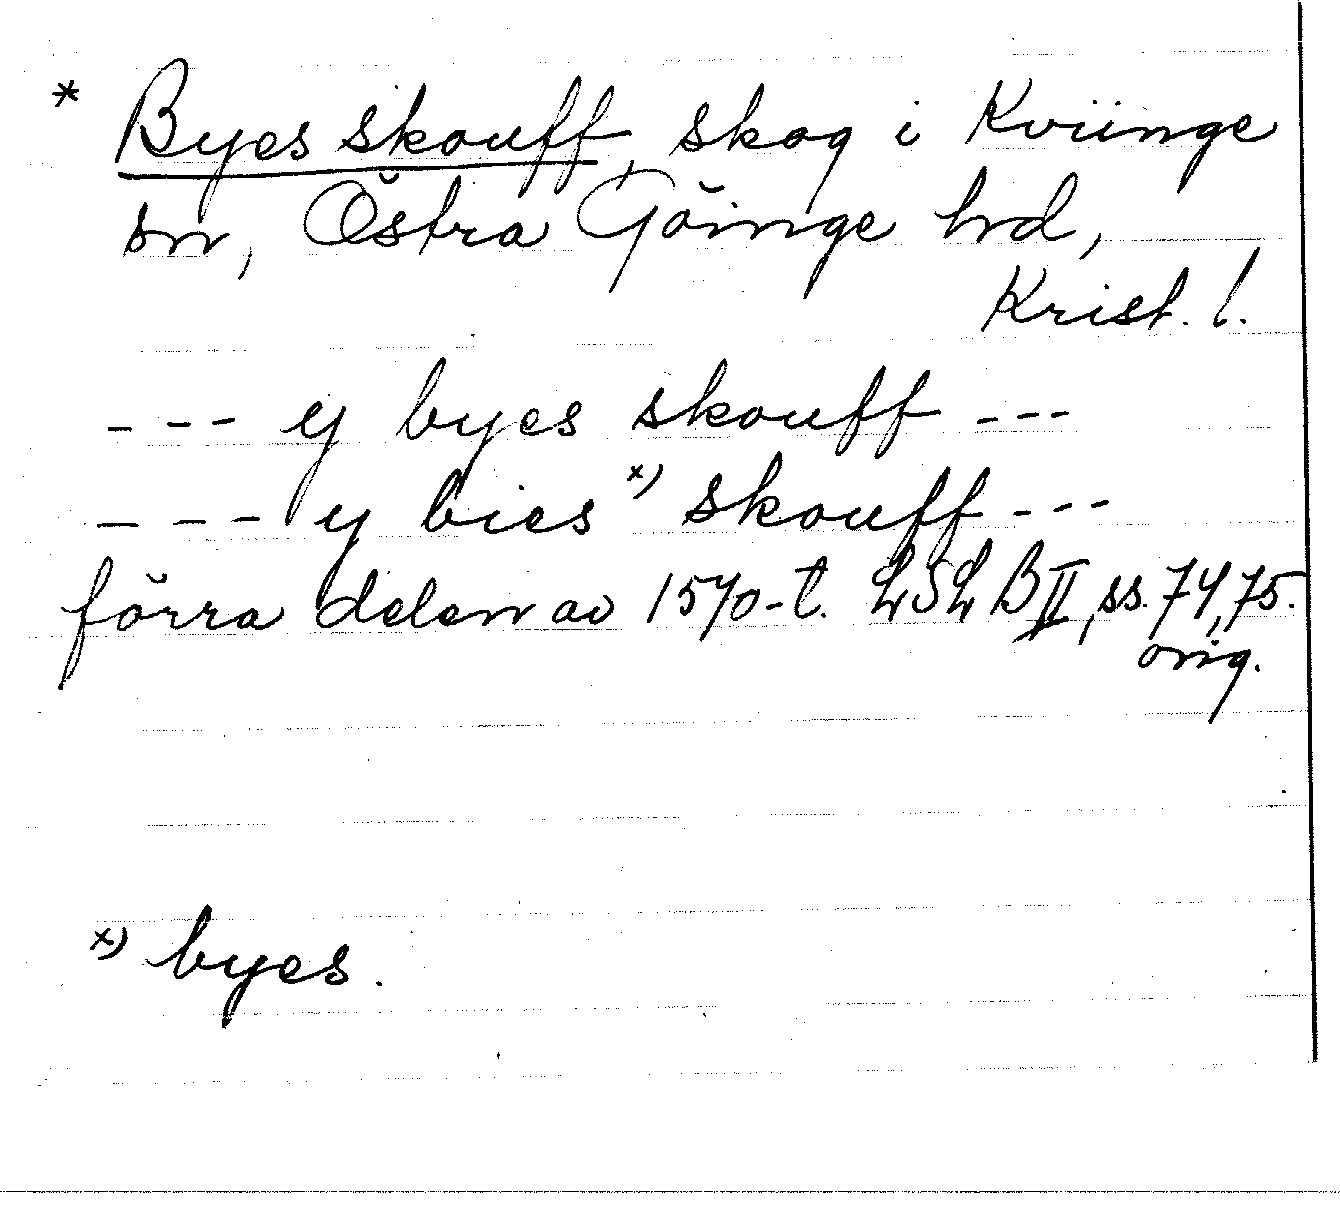 * Byes skouff, skog i Kviinge
sn, Östra Göinge hd,
Krist. l.
--- y byes skouff ---
--- y bies x) skouff ---
förra delen av 1570-t. LSL BII, ss. 74, 75.
orig.
x) byes.